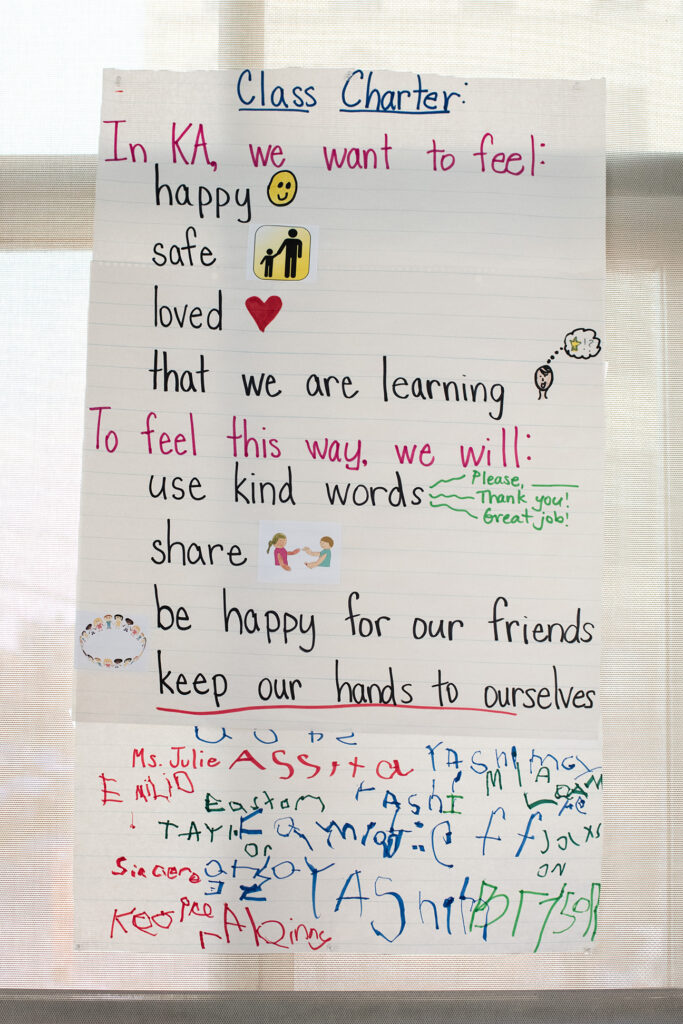 Class Charter:
In KA, we want to feel:
happy
safe
loved
that we are learning
To feel this way, we will:
use kind words
Please,
Thank you!
Great job!
share
be happy for our friends
keep our hands to ourselves
Ms. Julie Assita
EMiLiO
Eastom
YAShI
TAYL
or
Jaxs
on